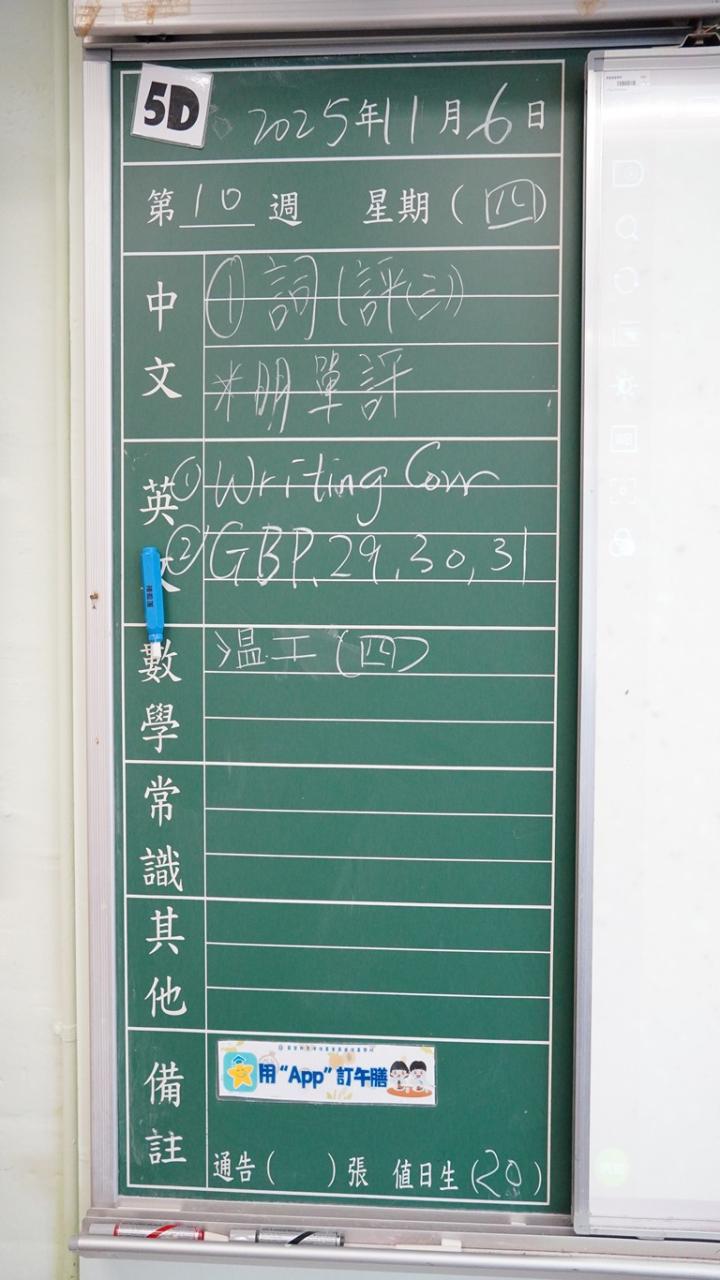 5D
2025年11月6日
第10週 星期(四)
中文
① 詞(評(三))
*明單評
英
① Writing Corr
② GBP. 29, 30, 31
數學
溫工(四)
常識
其他
備註
用“App”訂午膳
通告( )張 值日生(20)